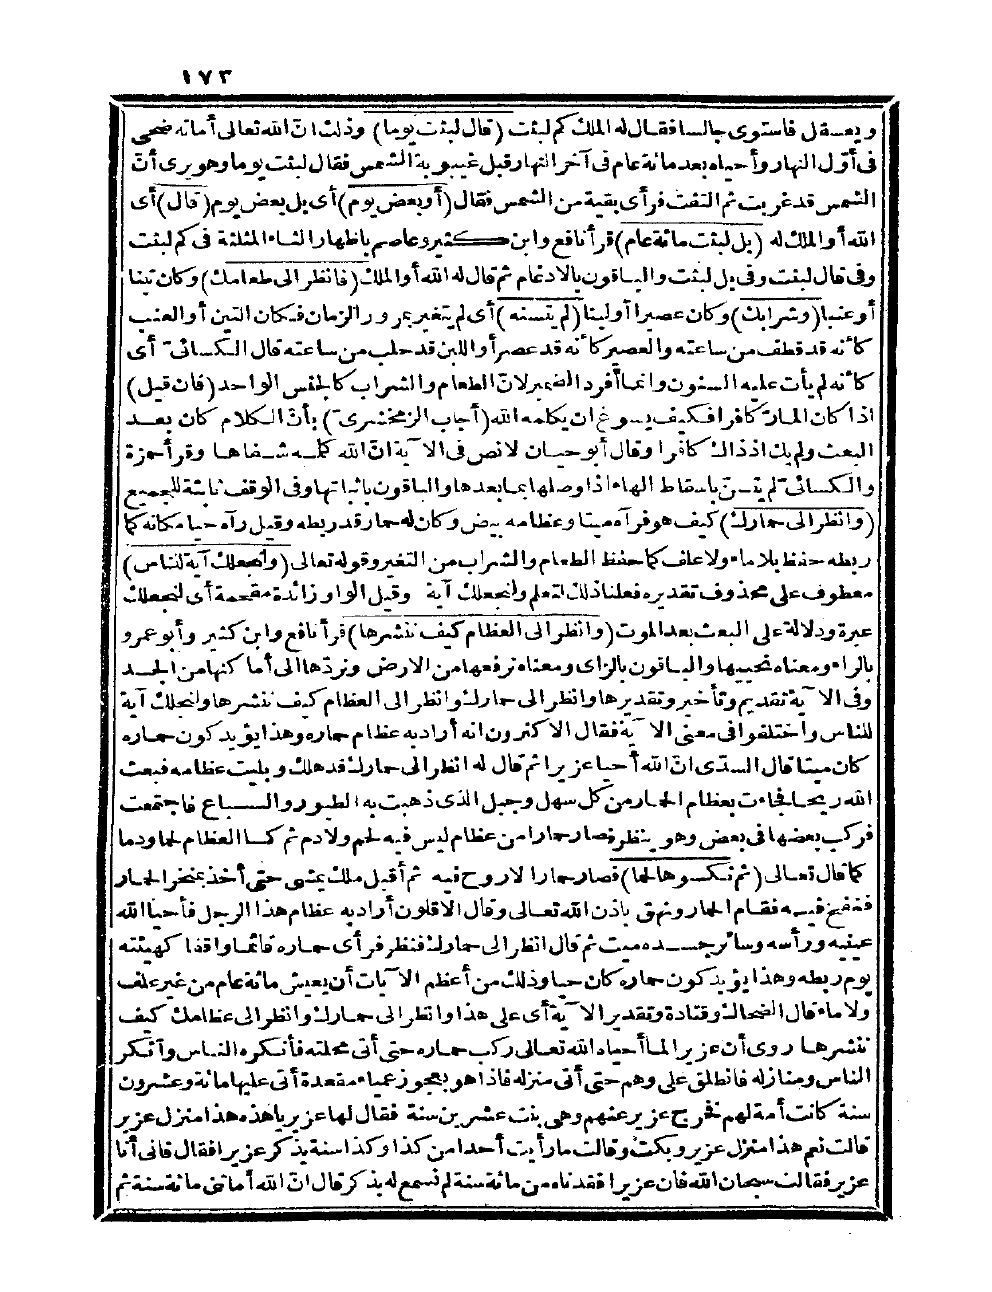 ١٧٣
ويعقل فاستوى جالسا فقال له الملك كم لبثت (قال لبثت يوما) وذلك أنّ الله تعالى أماته ضحى
فى أوّل النهار وأحياه بعد مائة عام فى آخر النهار قبل غيبوبة الشمس فقال لبثت يوما وهو يرى أنّ
الشمس قد غربت ثم التفت فرأى بقية من الشمس فقال (أو بعض يوم) أى بل بعض يوم (قال) أى
الله أو الملك له (بل لبثت مائة عام) قرأ نافع وابن كثير وعاصم باظهار الثاء المثلثة فى كم لبثت
وفى قال لبثت وفى بل لبثت والباقون بالادغام ثم قال له الله أو الملك (فانظر الى طعامك) وكان تينا
أو عنبا (وشرابك) وكان عصيرا أو لبنا (لم يتسنه) أى لم يتغير بمرور الزمان فكان التين أو العنب
كأنه قد قطف من ساعته والعصير كأنه قد عصر أو اللبن قد حلب من ساعته قال الكسائىّ أى
كأنه لم يأت عليه السنون وانما أفرد الضمير لانّ الطعام والشراب كالجنس الواحد (فان قيل)
اذا كان المارّ كافرا فكيف يسوغ ان يكلمه الله (أجاب الزمخشرىّ) بأنّ الكلام كان بعد
البعث ولم يك اذ ذاك كافرا وقال أبو حيان لا نص فى الآية انّ الله كلمه شفاها وقرأ حمزة
والكسائىّ لم يتسنّ باسقاط الهاء اذا وصلها بما بعدها والباقون باثباتها وفى الوقف ثابتة للجميع
(وانظر الى حمارك) كيف هو فرآه ميتا وعظامه بيض وكان له حمار قد ربطه وقيل رآه حيا مكانه كما
ربطه حفظ بلا ماء ولا علف كما حفظ الطعام والشراب من التغير وقوله تعالى (ولنجعلك آية للناس)
معطوف على محذوف تقديره فعلنا ذلك لتعلم ولنجعلك آية وقيل الواو زائدة مقحمة أى لنجعلك
عبرة ودلالة على البعث بعد الموت (وانظر الى العظام كيف ننشرها) قرأ نافع وابن كثير وأبو عمرو
بالراء ومعناه نحييها والباقون بالزاى ومعناه نرفعها من الارض ونردّها الى أماكنها من الجسد
وفى الآية تقديم وتأخير وتقديرها وانظر الى حمارك وانظر الى العظام كيف ننشرها ولنجعلك آية
للناس واختلفوا فى معنى الآية فقال الاكثرون انه أراد به عظام حماره وهذا يؤيد كون حماره
كان ميتا قال السدّى انّ الله أحيا عزيرا ثم قال له انظر الى حمارك قد هلك وبليت عظامه فبعث
الله ريحا فجاءت بعظام الحمار من كل سهل وجبل الذى ذهبت به الطيور والسباع فاجتمعت
فركب بعضها فى بعض وهو ينظر فصار حمارا من عظام ليس فيه لحم ولا دم ثم كسا العظام لحما ودما
كما قال تعالى (ثم نكسوها لحما) فصار حمارا لا روح فيه ثم أقبل ملك يمشى حتى أخذ بمنخر الحمار
فنفخ فيه فقام الحمار ونهق باذن الله تعالى وقال الاقلون أراد به عظام هذا الرجل فأحيا الله
عينيه ورأسه وسائر جسده ميت ثم قال انظر الى حمارك فنظر فرأى حماره قائما واقفا كهيئته
يوم ربطه وهذا يؤيد كون حماره كان حيا وذلك من أعظم الآيات أن يعيش مائة عام من غير علف
ولا ماء قال الضحاك وقتادة وتقدير الآية أى على هذا وانظر الى حمارك وانظر الى عظامك كيف
ننشرها روى أن عزيرا لما أحياه الله تعالى ركب حماره حتى أتى محلته فأنكره الناس وأنكر
الناس ومنازله فانطلق على وهم حتى أتى منزله فاذا هو بعجوز عمياء مقعدة أتى عليها مائة وعشرون
سنة كانت أمة لهم فخرج عزير عنهم وهى بنت عشرين سنة فقال لها عزير يا هذه هذا منزل عزير
قالت نعم هذا منزل عزير وبكت وقالت ما رأيت أحدا من كذا وكذا سنة يذكر عزيرا فقال فانى أنا
عزير فقالت سبحان الله فان عزيرا فقدناه من مائة سنة لم نسمع له بذكر قال انّ الله أماتنى مائة سنة ثم